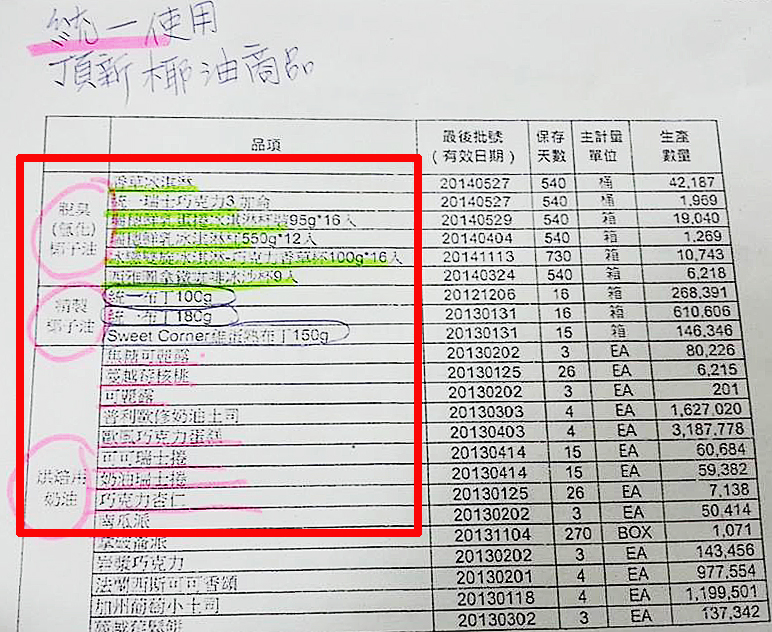 統一使用
頂新椰油商品
品項 最後批號(有效日期) 保存天數 主計量單位 生產數量
脫臭(氫化)椰子油
香草冰淇淋 20140527 540 桶 42,187
統一瑞士巧克力3加侖 20140527 540 桶 1,969
95g*16入 20140529 540 箱 19,040
550g*12入 20140404 540 箱 1,269
巧克力香草杯100g*16入 20141113 730 箱 10,743
西雅圖拿鐵咖啡冰沙杯9入 20140324 540 箱 6,218
精製椰子油
統一布丁100g 20121206 16 箱 268,391
統一布丁180g 20130131 16 箱 610,606
Sweet Corner雞蛋熟布丁150g 20130131 15 箱 146,346
烘焙用奶油
焦糖可麗露 20130202 3 EA 80,226
蔓越莓核桃 20130125 26 EA 6,215
可麗露 20130202 3 EA 201
普利歐修奶油土司 20130303 4 EA 1,627,020
歐風巧克力蛋糕 20130403 4 EA 3,187,778
可可瑞士捲 20130414 15 EA 60,684
奶油瑞士捲 20130414 15 EA 59,382
巧克力杏仁 20130125 26 EA 7,138
南瓜派 20130202 3 EA 50,414
20131104 270 BOX 1,071
岩漿巧克力 20130202 3 EA 143,456
法蘭西斯可可香頌 20130201 4 EA 977,554
加州葡萄小土司 20130118 4 EA 1,199,501
20130302 3 EA 137,342